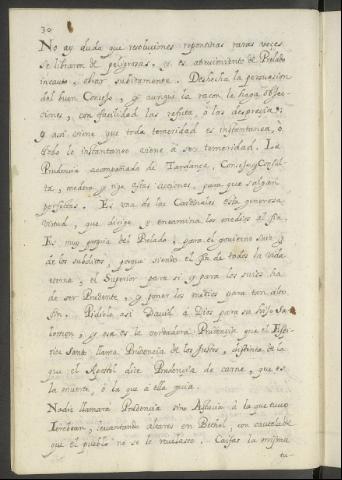 30
No ay duda que resoluciones repentinas raras vezes
se libraron de peligrosas, y es atrevimiento de Prelado
incauto, obrar subitamente. Desecha la persuasion
del buen Consejo, y aunque la razon le haga obgec-
ciones, con facilidad las refuta, ò las desprecia;
y assi viene que toda temeridad es instantanea, ò
todo lo instantaneo viene à ser temeridad. La
Prudencia acompañada de Tardança, Consejo, y Consul-
ta, modera y rije estas acciones, para que salgan
perfectas. Es una de las Cardinales esta generosa
virtud, que dirige, y encamina los medios al fin.
Es muy propia del Prelado, para el govierno suio, y
de los subditos, porque siendo el fin de todos la vida
eterna, el Superior para si, y para los suios ha
de ser Prudente, y poner los medios para tan alto
fin. Pidiola asi David à Dios para su hijo Sa-
lomon, y esa es la verdadera Prudencia que el Espi-
ritu Santo llama Prudencia de los Justos, distinta de la
que el Apostol dise Prudencia de carne, que es
la muerte, ò la que à ella guia.
Nadie llamarà Prudencia sino Astucia à la que tuvo
Jeroboan, levantando altares en Bethel, con cautela de
que el pueblo no se le revelasse. Caifas la misma
tu-